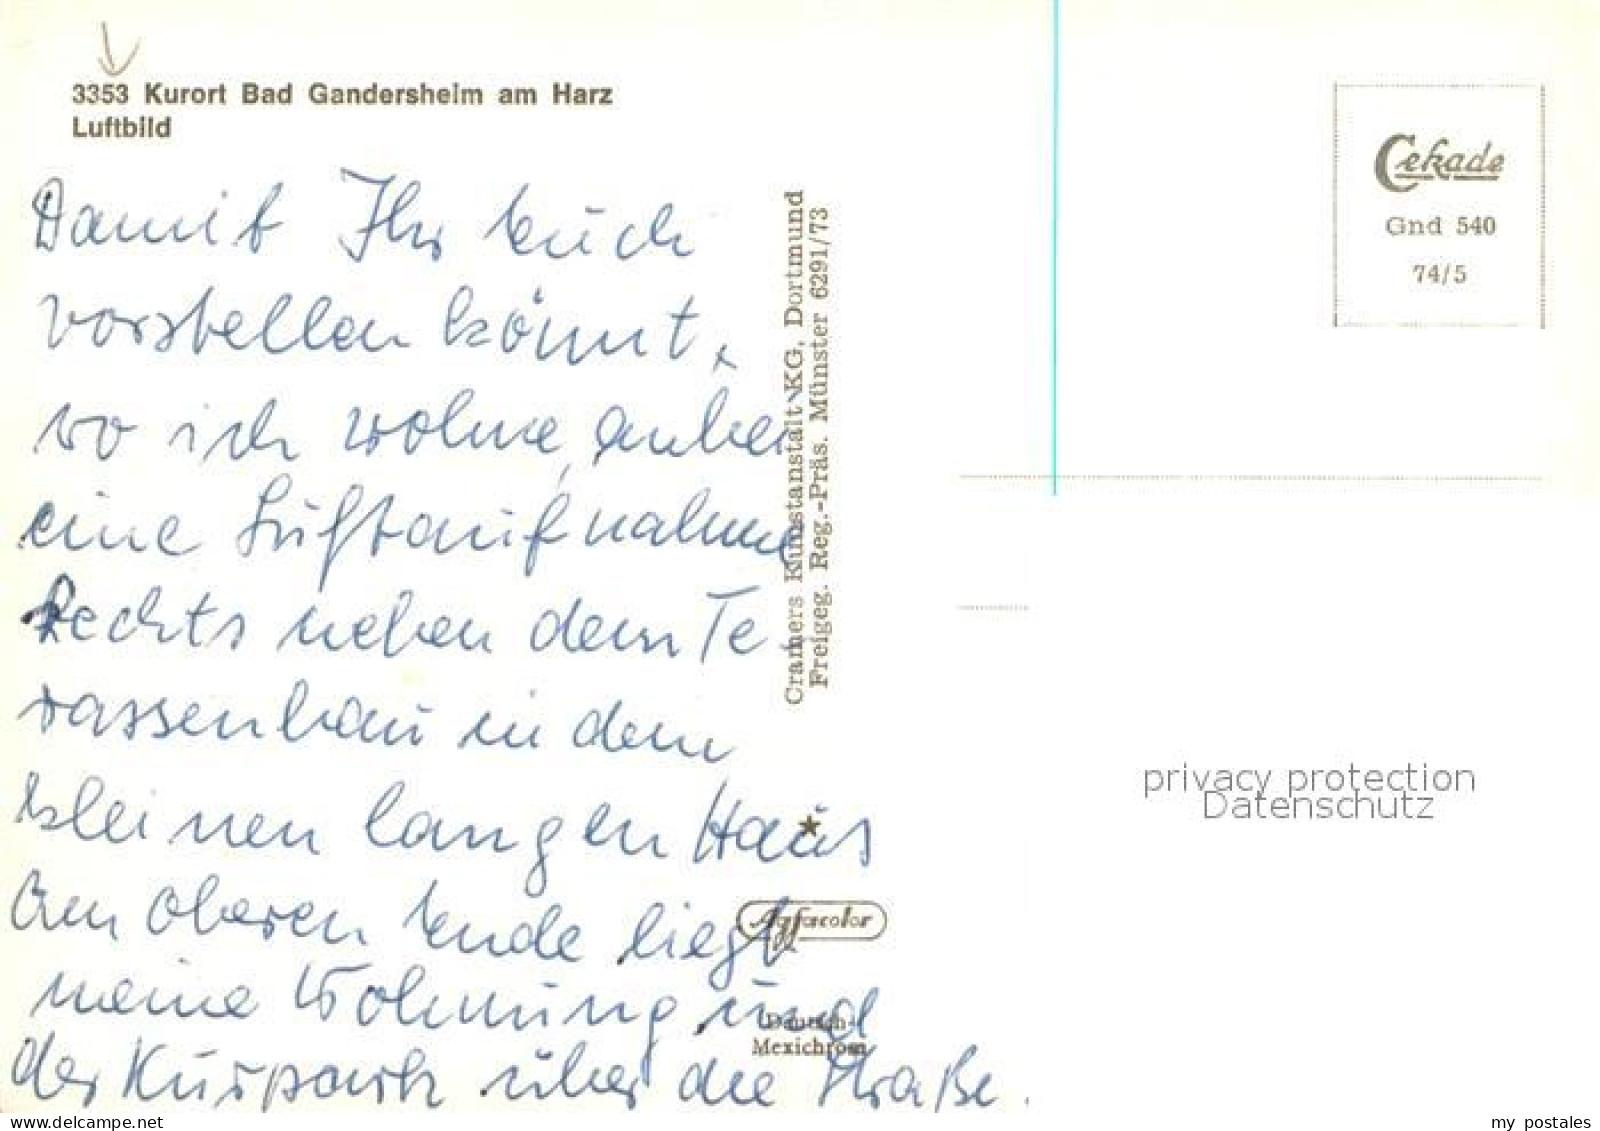 3353 Kurort Bad Gandersheim am Harz
Luftbild
Damit Ihr Euch
vorstellen könnt,
wo ich wohne, anbei
eine Luftaufnahme
Rechts neben dem Te-
rassenbau in dem
kleinen langen Haus
Am oberen Ende liegt
meine Wohnung und
der Kurpark über die Straße.
Cramers Kunstanstalt KG, Dortmund
Freigeg. Reg.-Präs. Münster 6291/73
Agfacolor
Deutsch-
Mexichrom
Cekade
Gnd 540
74/5
privacy protection
Datenschutz
delcampe.net
my_postales